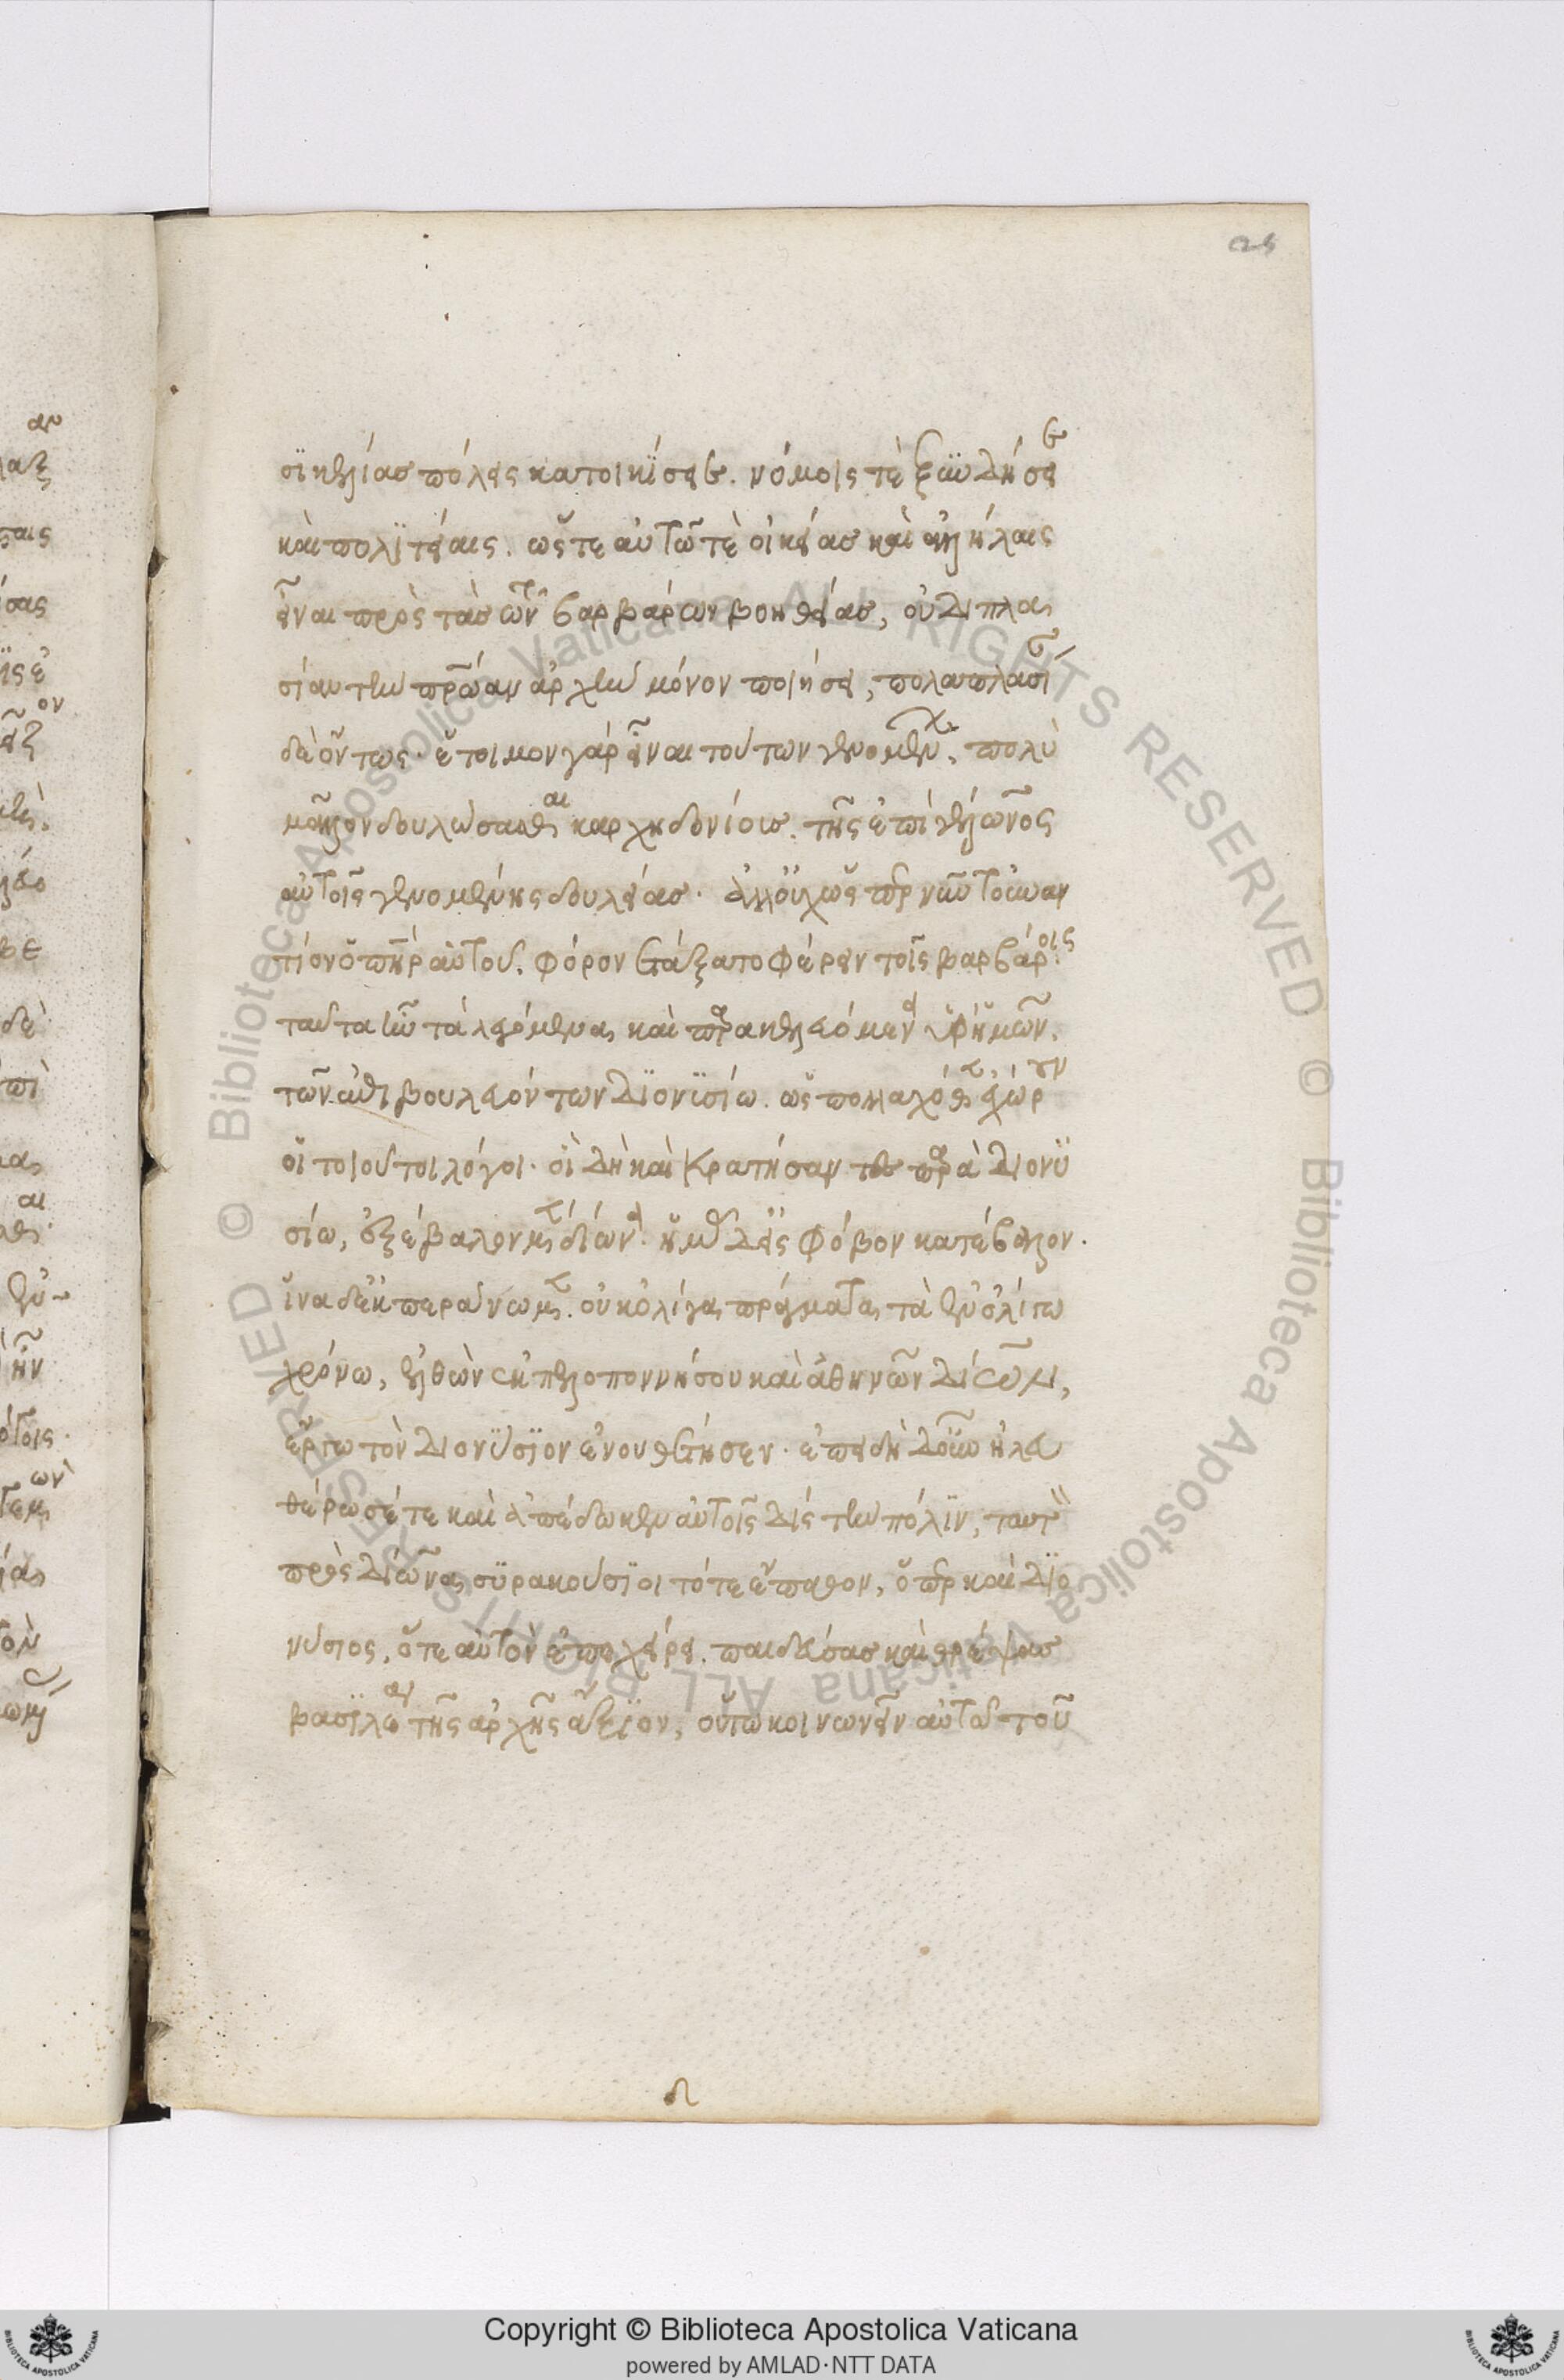 σϊκελίας πόλεις κατοικϊσειε. νόμοις τὲ ξυνδήσειε
καὶ πολϊτείαις. ὥςτε αὐτῶ τὲ οἰκείας καὶ ἀλλήλαις
εἶναι πρὸς τὰσ τῶν βαρβάρων βοηθείας, οὐ διπλα
σίαν τὴν πρώαν ἀρχὴν μόνον ποιήσει, πολαπλασίαν
δὲ ὄντως. ἕτοιμον γάρ εἶναι τούτων γενομένων, πολὺ
μᾶλλον δουλώσασθαι καρχηδονίους. τῆς ἐπὶ γέλωνος
αὐτοῖς γενομένης δουλείας. ἀλλ οὐχ ὥςπερ νῦν τοὐναν
τίον ὁ πατὴρ αὐτοῦ. φόρον ἐτάξατο φέρειν τοῖς βαρβάροις.
ταῦτα ἦν τὰ λεγόμενα, καὶ παρακελευόμενα ὑφ ἡμῶν.
τῶν ἐπιβουλευόντων Διονϋσίω. ὡς πολλαχόθεν ἐχώρουν
οἱ τοιοῦτοι λόγοι. οἳ δὴ καὶ κρατήσαντες παρὰ Διονϋ
σίω, ἐξέβαλον μὲν δίωνα. ἡμᾶς δ εἰς φόβον κατέβαλλον.
ἵνα δ ἐκπεραίνωμεν. οὐκ ὀλίγα πράγματα, τὰ ἐν ὀλίγω
χρόνω, ἐλθὼν ἐκ πελοποννήσου καὶ ἀθηνῶν δίων,
ἔργω τὸν Διονϋσϊον ἐνουθέτησεν. ἐπειδὴ δοῦν ἠλευ
θέρωσέ τε καὶ ἀπέδωκεν αὐτοῖς δὶς τὴν πόλϊν, ταυτὸν
πρὸς δίωνα, σϋρακούσϊοι τότε ἔπαθον, ὅπερ καὶ Δϊο
νύσιος, ὅτε αὐτὸν ἐπεχείρει. παιδεύσας καὶ θρέψας
βασϊλέα τῆς ἀρχῆς ἄξϊον, οὕτω κοινωνεῖν αὐτῶ τοῦ